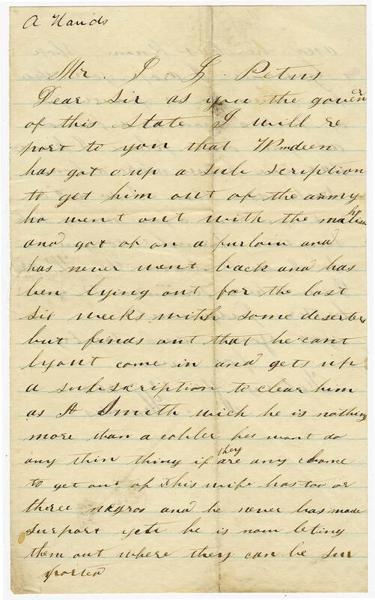 A Hands
Mr. J J Petus
Dear Sir as you the govener
of this State I will re
port to you that Wm deen
has got up a sub scription
to get him out of the army
ho went out with the malisia
and got of on a furlow and
has never went back and has
ben lying out for the last
Six weeks with some deserters
but finds out that he cant
lyout come in and gets up
a subscription to clear him
as A Smith wich he is nothing
more than a cobler hes wont do
any thin thing if they are any chance
to get out of it his wife has too or
three negros and he never has made
surport yet he is now leting
them out where they can be sur
ported